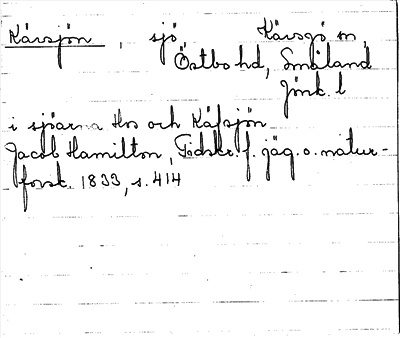 Kävsjön, sjö, Kävsjö sn,
Östbo hd, Småland
Jönk. l
i sjöarna Hos och Käfsjön
Jacob Hamilton, Tidskr. f. jäg. o. natur-
forsk. 1833, s. 414